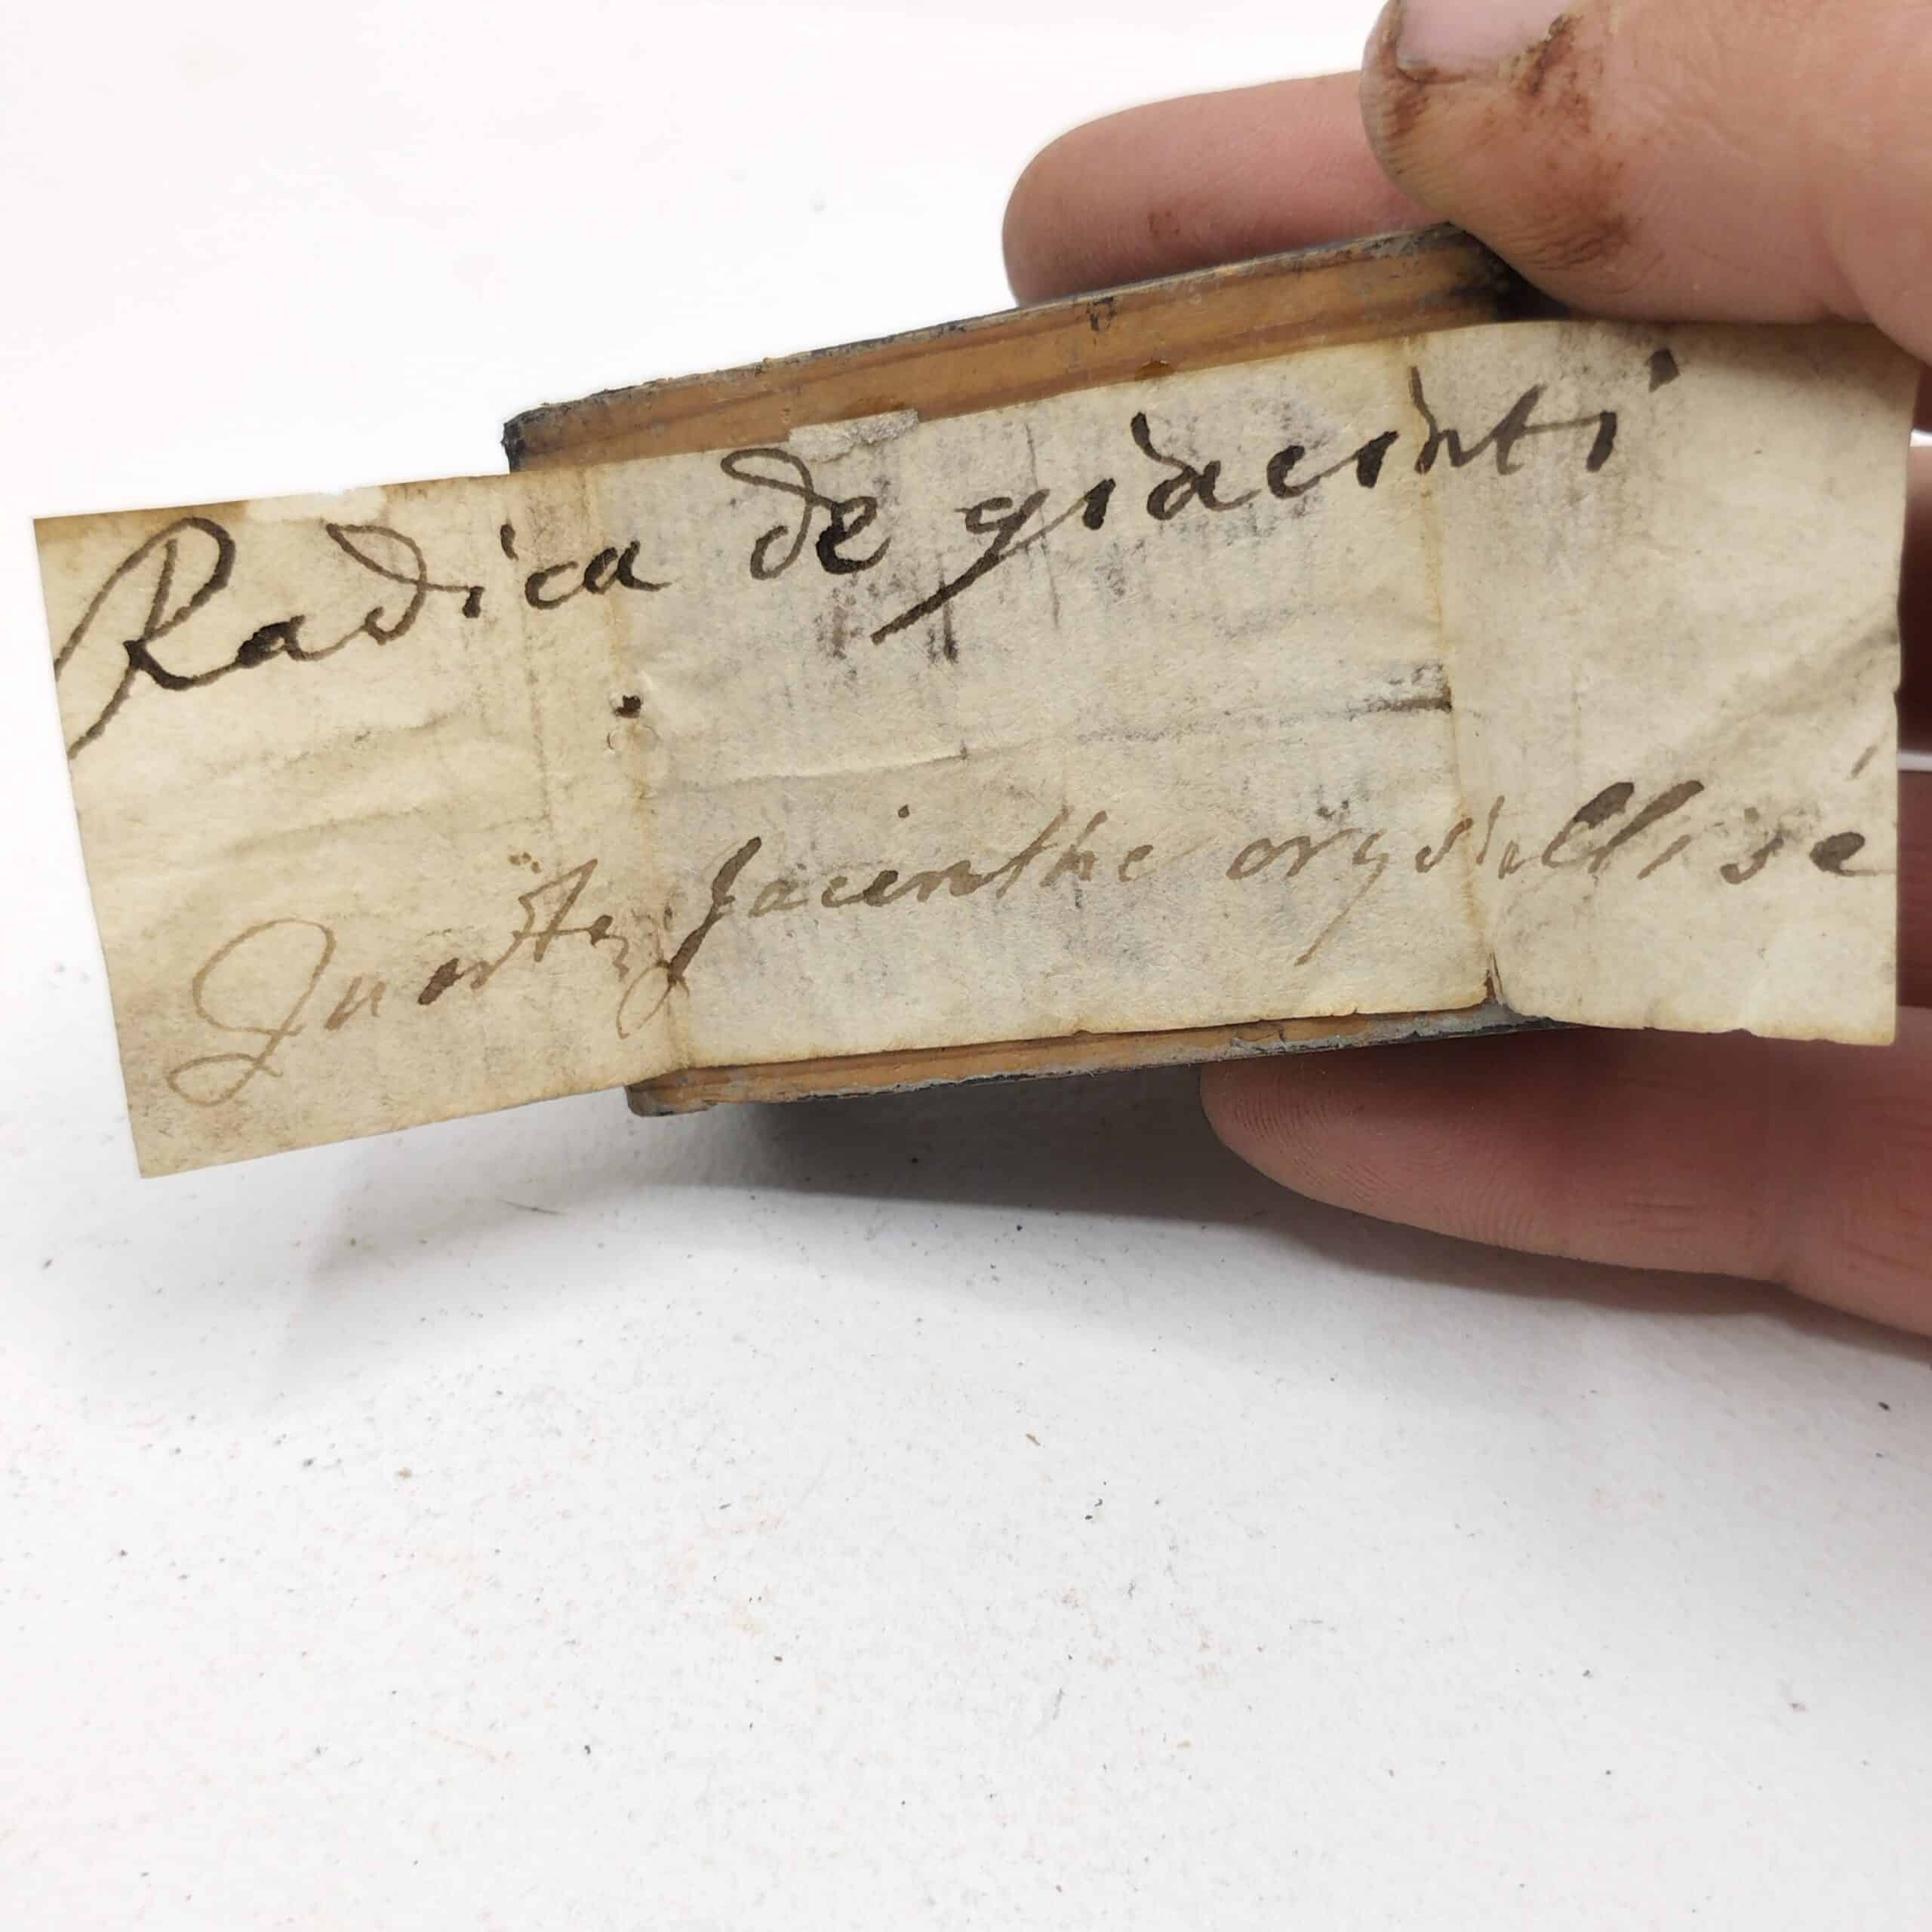 Radica de giacinti
Quartz Jacinthe crystallisé